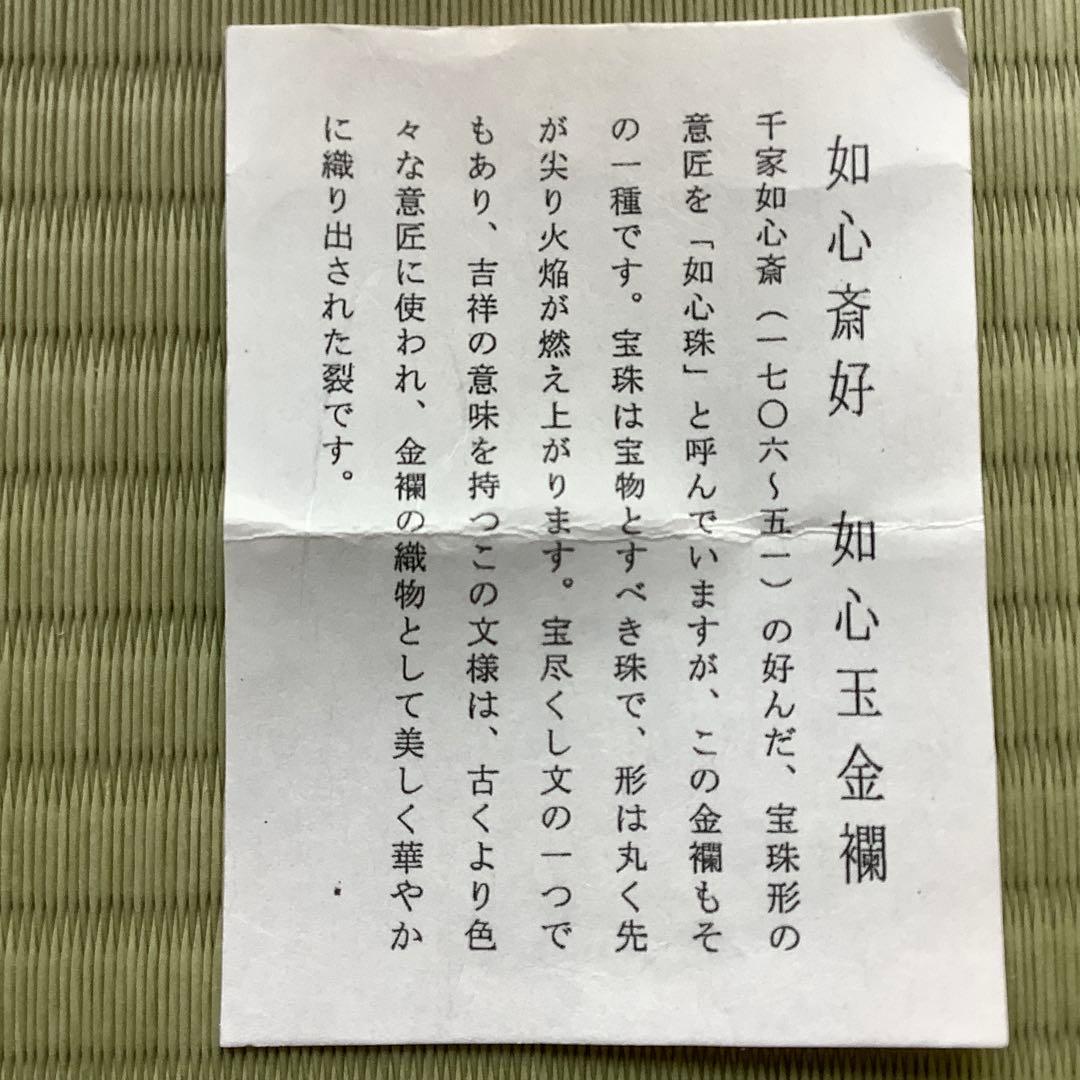 如心斎好　如心玉金襴
千家如心斎（一七〇六～五一）の好んだ、宝珠形の
意匠を「如心珠」と呼んでいますが、この金襴もそ
の一種です。宝珠は宝物とすべき珠で、形は丸く先
が尖り火焔が燃え上がります。宝尽くし文の一つで
もあり、吉祥の意味を持つこの文様は、古くより色
々な意匠に使われ、金襴の織物として美しく華やか
に織り出された裂です。